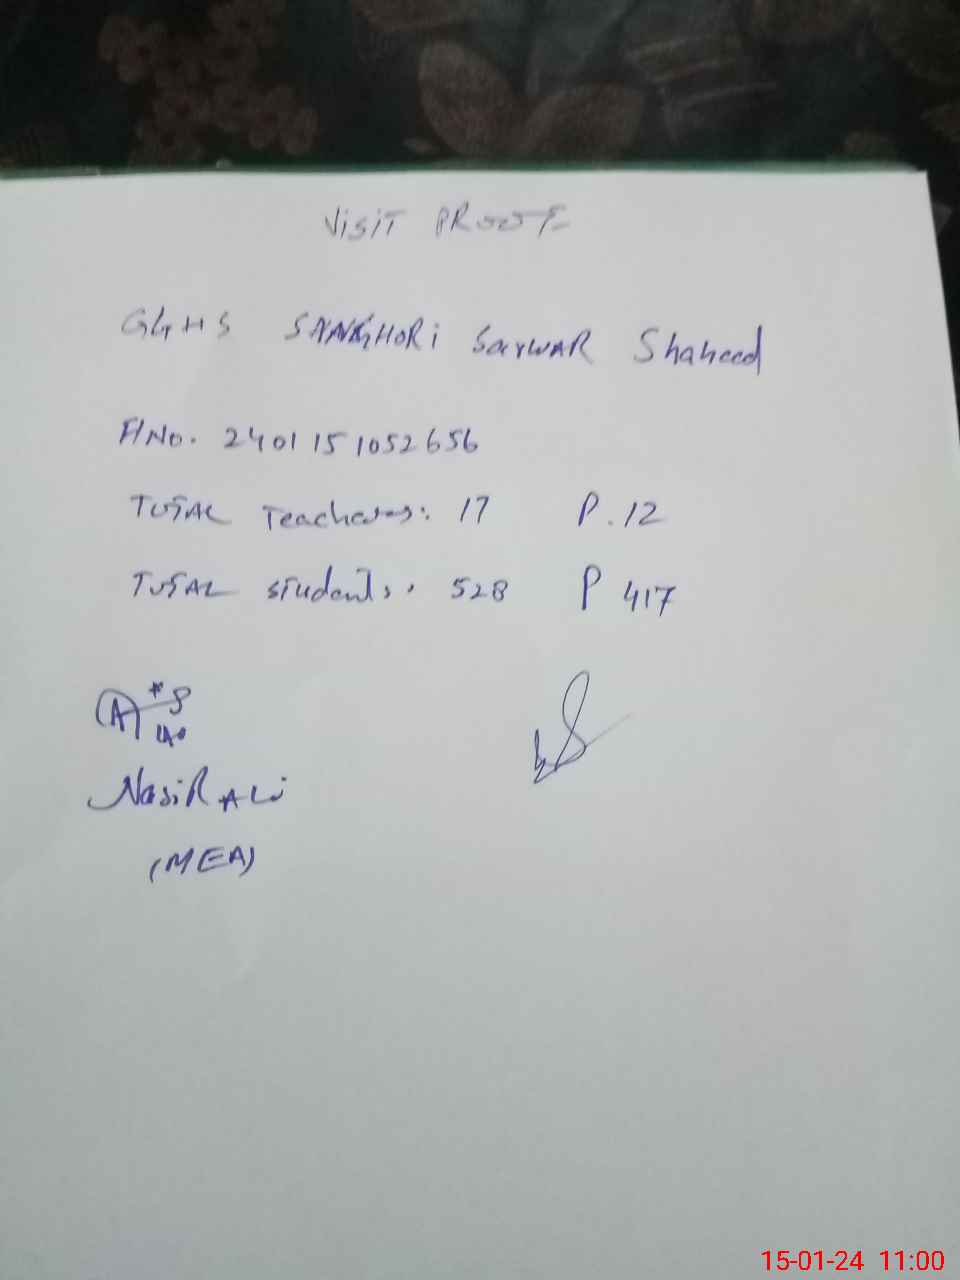 VISIT PROOF
GGHS SANGHORI SarWAR Shaheed
F/No. 2401151052656
TOTAL Teachers: 17 P. 12
TOTAL students: 528 P 417
NasiR ALi
(MEA)
15-01-24 11:00